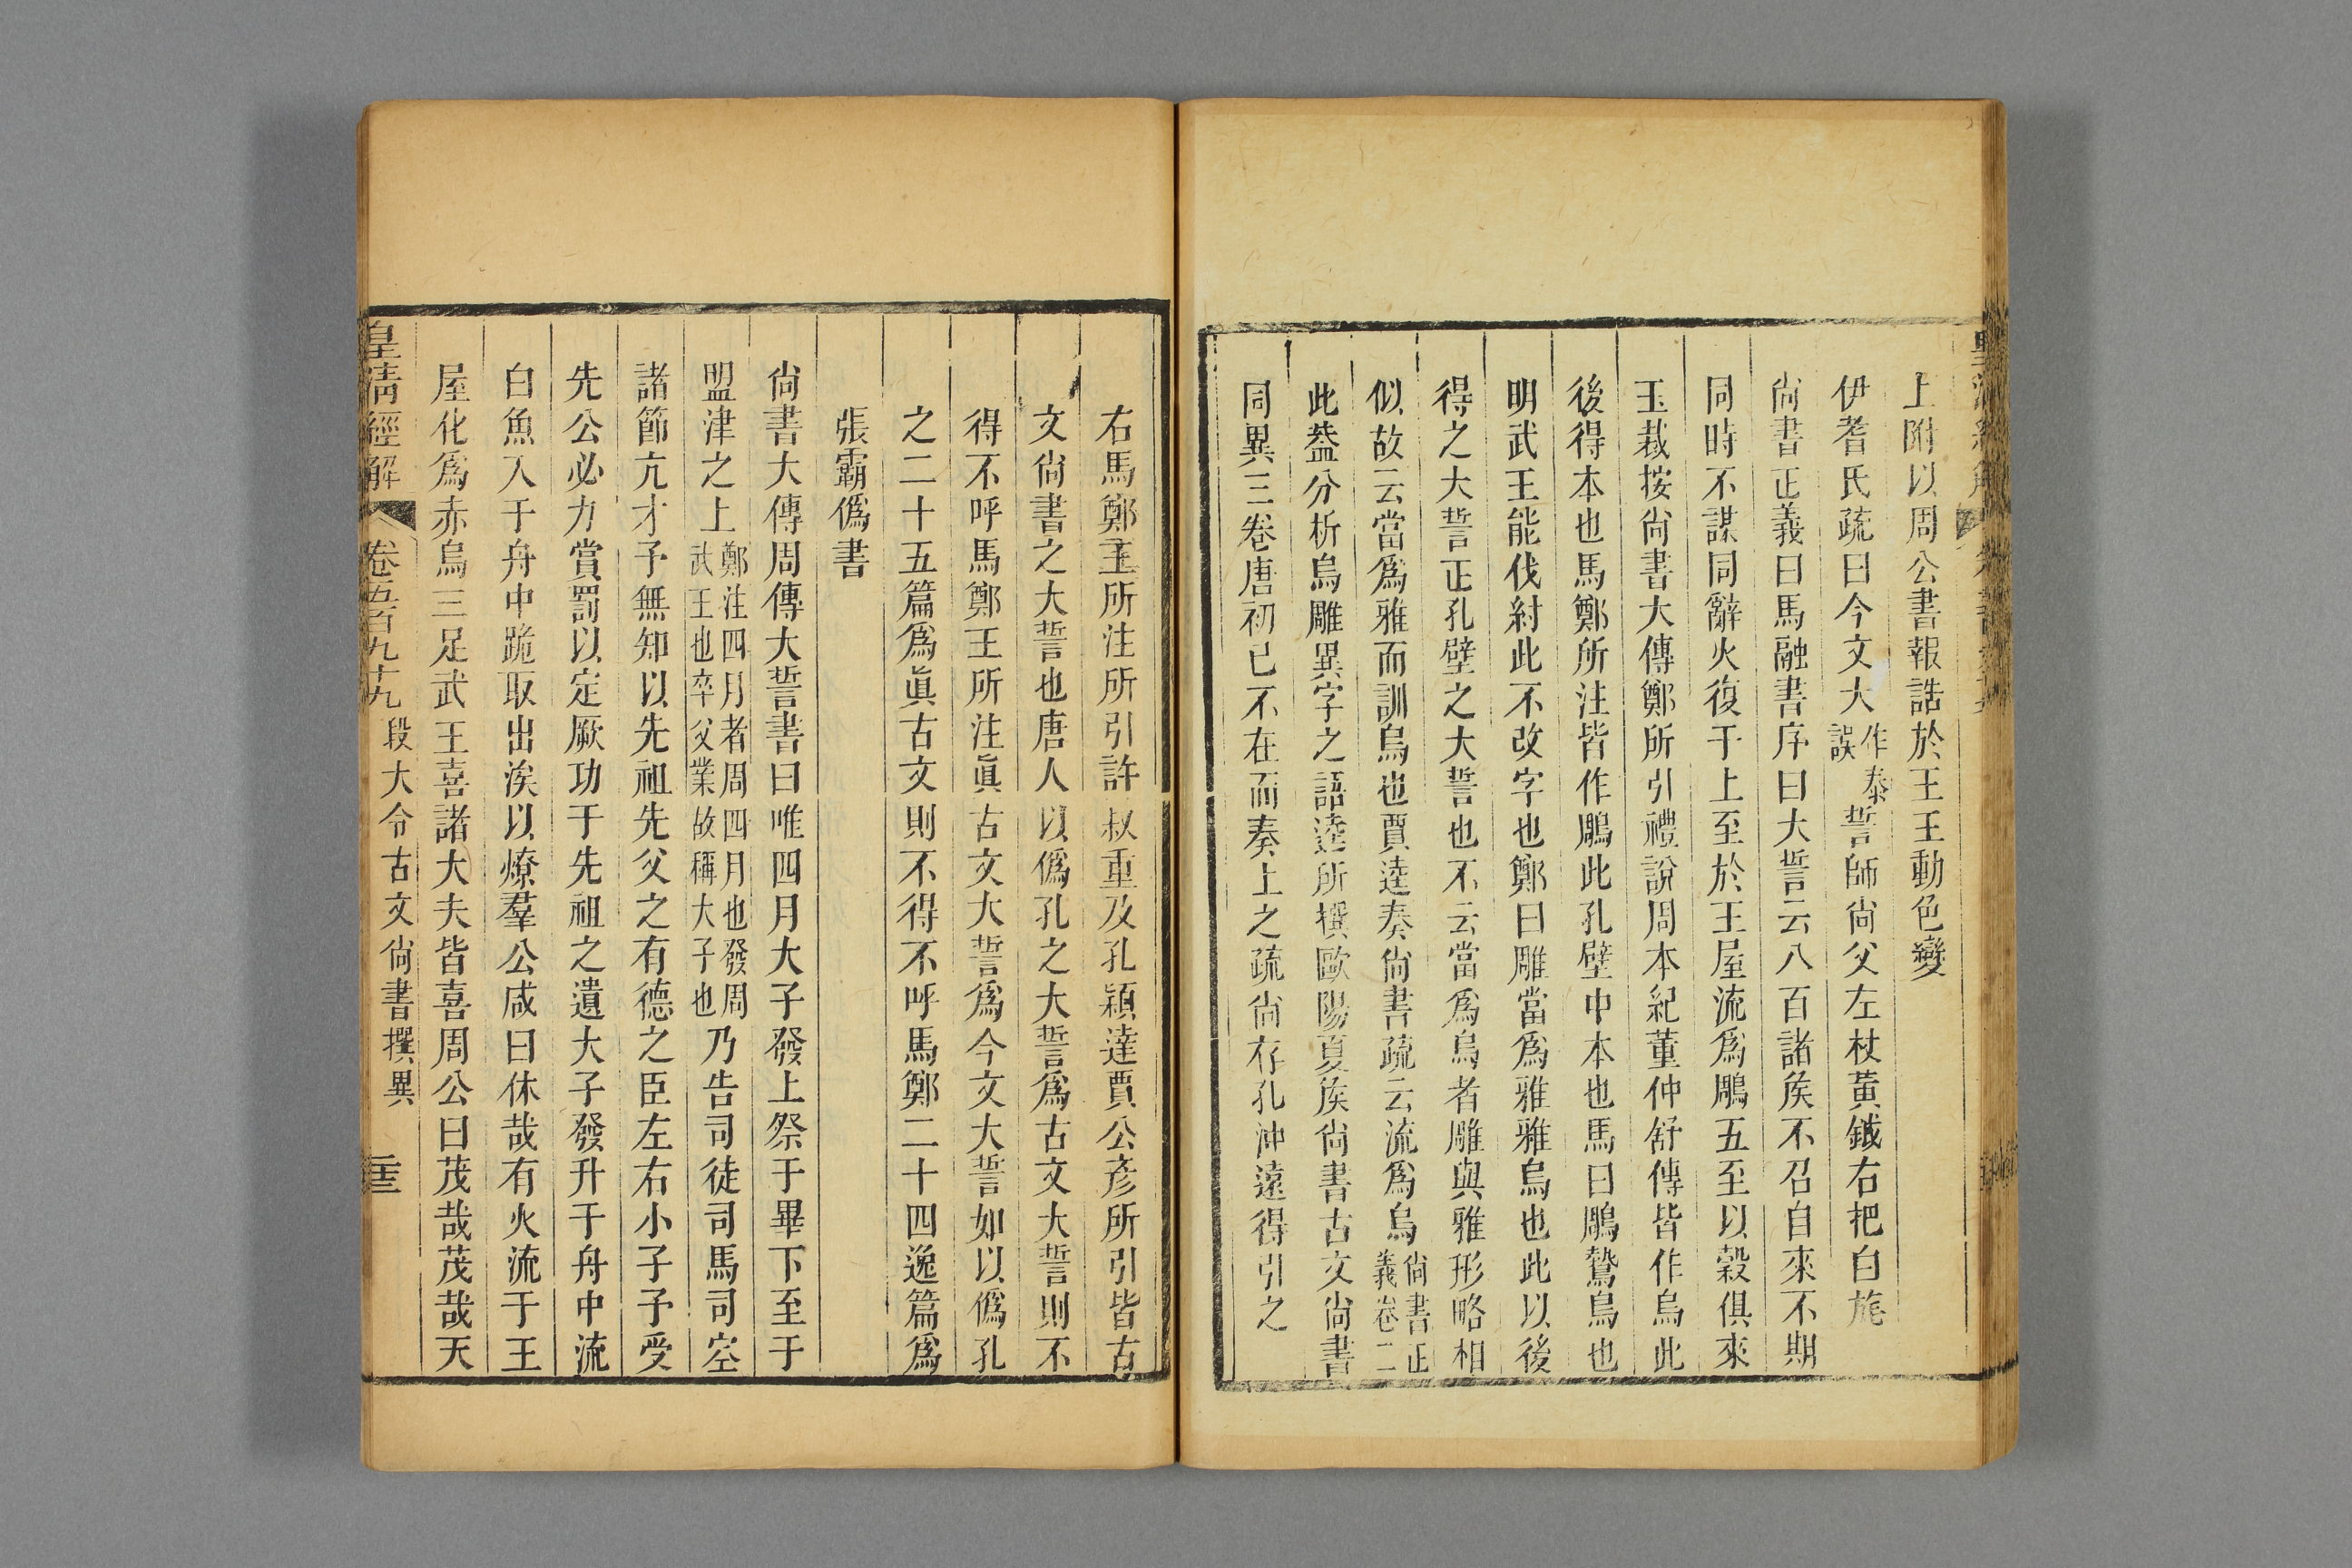 上附以周公書報誥於王王動色變
伊耆氏疏曰今文大作泰誤誓師尙父左杖黃鉞右把白旄
尙書正義曰馬融書序曰大誓云八百諸矦不召自來不期
同時不謀同辭火復于上至於王屋流爲鵰五至以榖俱來
玉裁按尙書大傳鄭所引禮說周本紀董仲舒傳皆作烏此
後得本也馬鄭所注皆作鵰此孔壁中本也馬曰鵰鷙鳥也
明武王能伐紂此不改字也鄭曰雕當爲雅雅烏也此以後
得之大誓正孔壁之大誓也不云當爲烏者雕與雅形略相
似故云當爲雅而訓烏也賈逵奏尙書疏云流爲烏尙書正義卷二
此葢分析烏雕異字之語逵所撰歐陽夏矦尙書古文尙書
同異三卷唐初已不在而奏上之疏尙存孔沖遠得引之
右馬鄭王所注所引許叔重及孔穎達賈公彥所引皆古
文尙書之大誓也唐人以僞孔之大誓爲古文大誓則不
得不呼馬鄭王所注眞古文大誓爲今文大誓如以僞孔
之二十五篇爲眞古文則不得不呼馬鄭二十四逸篇爲
張霸僞書
尙書大傳周傳大誓書曰唯四月大子發上祭于畢下至于
盟津之上鄭注四月者周四月也發周武王也卒父業故稱大子也乃告司徒司馬司空
諸節亢才予無知以先祖先父之有德之臣左右小子予受
先公必力賞罰以定厥功于先祖之遺大子發升于舟中流
白魚入于舟中跪取出涘以燎羣公咸曰休哉有火流于王
屋化爲赤烏三足武王喜諸大夫皆喜周公曰茂哉茂哉天
皇淸經解 卷五百九十九 段大令古文尙書撰異